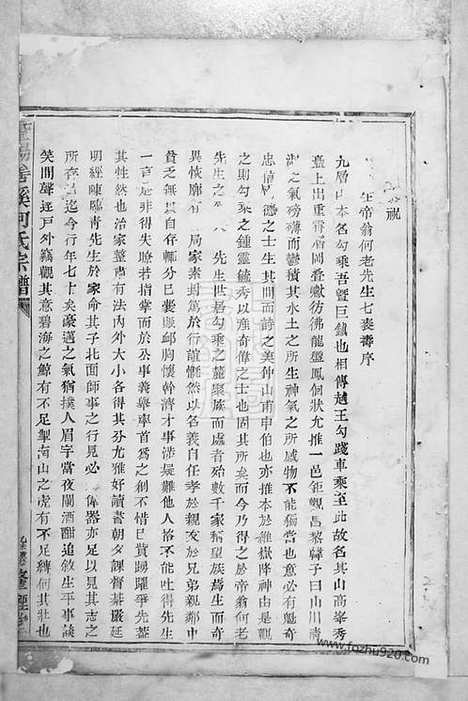 祝
帝翁何老先生七裘壽序
九層山本名勾乘吾暨巨鎮也相傳越王勾踐車乘至此故名其山高峯秀
疊上出重霄層岡叠巘彷彿龍盤鳳個狀尤推一邑鉅觀昌黎韓子曰山川清
淑之氣磅礴鬱積其水土之所生神氣之所感物不能獨當也意必有魁奇
忠信 德之士生其間而詩之美仲山甫申伯也亦推本於維嶽降神由是觀
之則勾乘之鍾靈毓秀以產奇偉之士也固其所矣而今得之於帝翁何老
先生 先生世居勾乘之麓聚族而處者殆數千家翁生而奇
異恢廓有 局家素封篤於行誼慨然以名義自任孝於親友於兄弟親鄰中
貧乏無 者輒分已囊賑邮胸懷幹濟才事涉疑難他人恪不能吐得先生
一言是非得失瞭若指掌而於公事義舉率首爲之創不惜已貲踴躍爭先蓋
其性然也治家整肅有法內外大小各得其分尤雅好讀書朝夕課督綦嚴延
明經陳曉青先生於家命其子北面師事之行見必 偉器亦足以見其志之
所存 迄今行年七十矣豪邁之氣猶撲人眉宇當夜闌酒酣追敘生平事談
笑間聲逐戶外竊觀其意碧海之鯨有不足掣南山之虎有不足縛何其壯也
暨陽 溪何氏宗譜
www.fozhu920.com